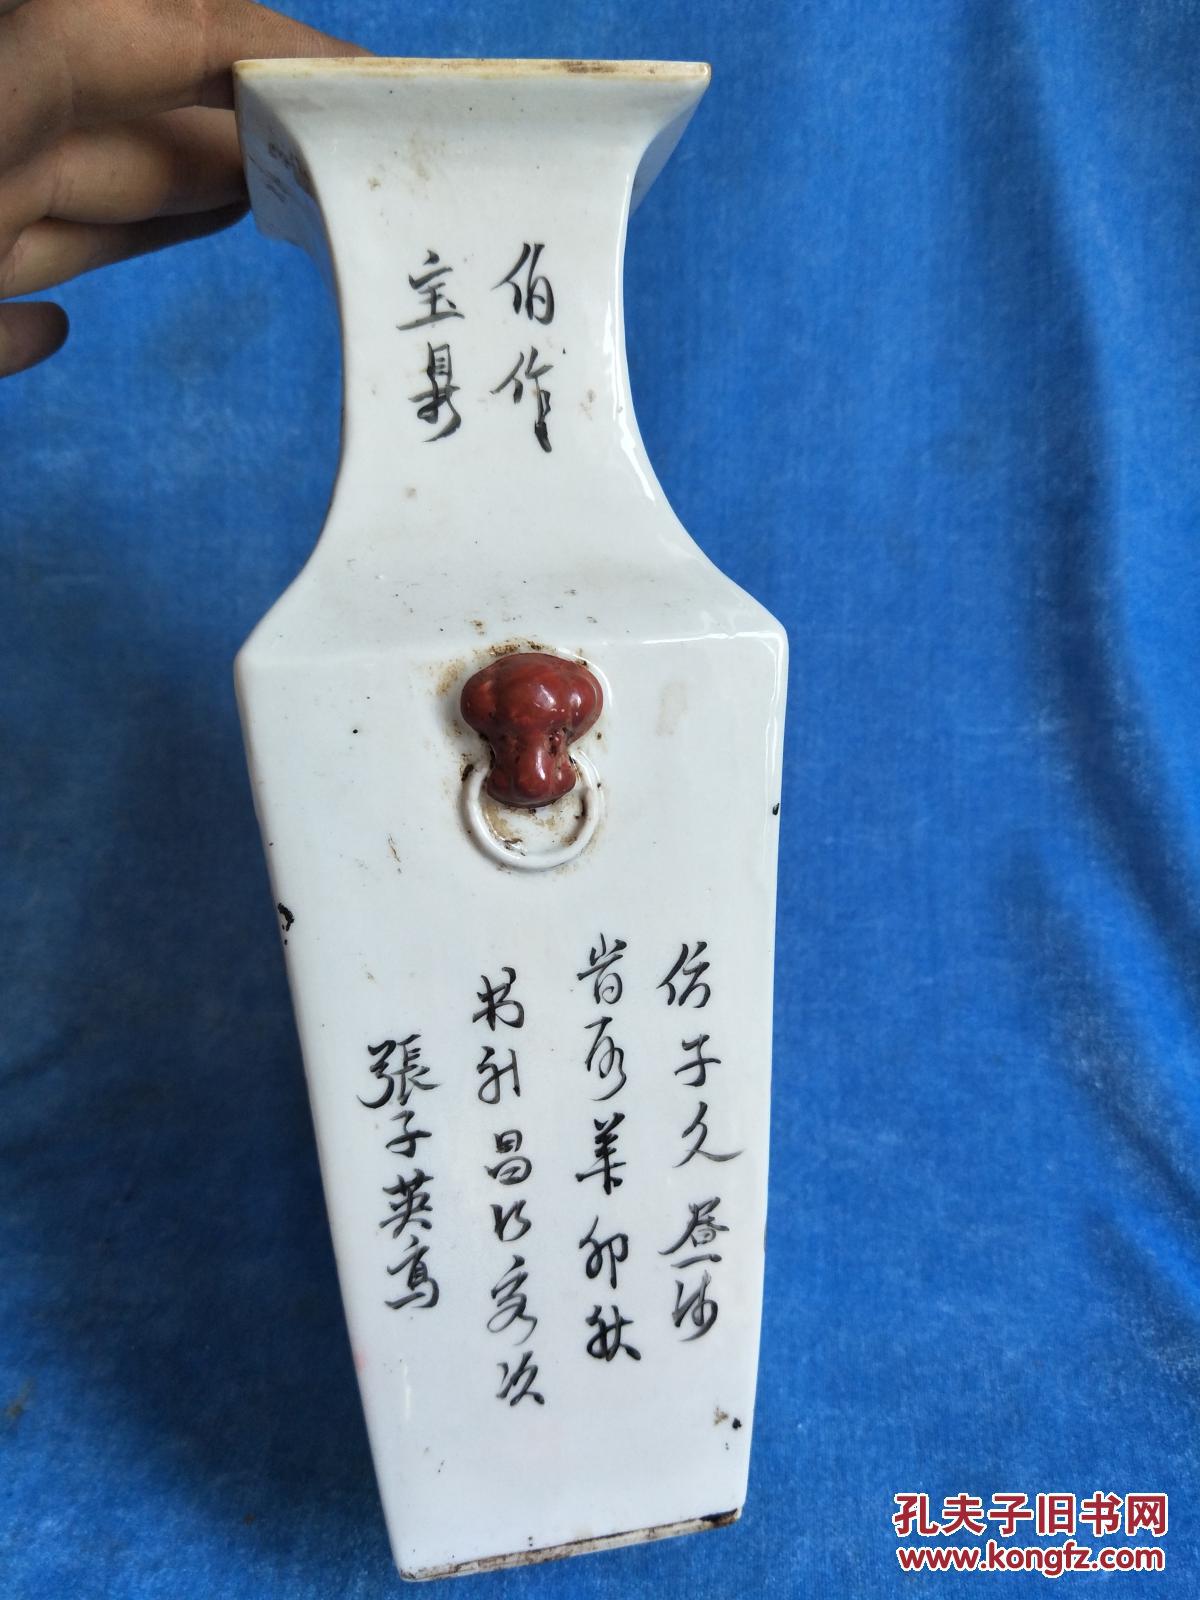 伯作
宝鼎
仿子久画法
岩 癸卯秋
书 昌江客次
張子英寫
孔夫子旧书网
www.kongfz.com